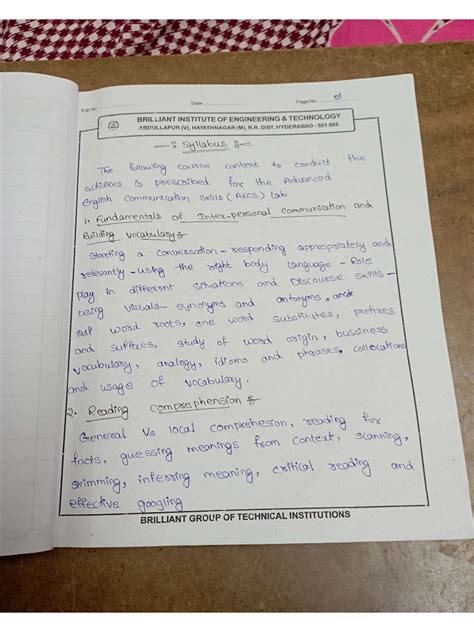 Exp No. Date Page No. 01
BRILLIANT INSTITUTE OF ENGINEERING & TECHNOLOGY
ABDULLAPUR (V), HAYATHNAGAR (M), R.R. DIST. HYDERABAD - 501 505.
Syllabus
The following course content to conduct the
activities is prescribed for the Advanced
English Communication Skills (AECS) Lab
1. Fundamentals of Inter-personal communication and
Building Vocabulary
Starting a conversation - responding appropriately and
relevantly - using the right body language - Role
play in different situations and Discourse skills -
using visuals - synonyms and antonyms,
word roots, one word substitutes, prefixes
and suffixes, study of word origin, bussiness
vocubulary, analogy, idioms and phrases, collocations
and usage of vocabulary.
2. Reading Comprephension
General Vs local comprehesion, reading for
facts, guessing meanings from context, scanning,
skimming, inferring meaning, critical reading and
effective googling
BRILLIANT GROUP OF TECHNICAL INSTITUTIONS